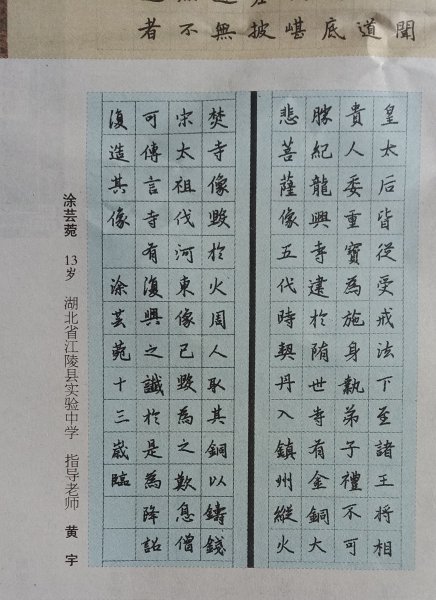 聞
道
底
嵁
披
無
不
者
皇太后皆從受戒法下至諸王将相
貴人委重寶為施身執弟子禮不可
勝紀龍興寺建於隋世寺有金銅大
悲菩薩像五代時契丹入鎮州縱火
焚寺像毀於火周人取其銅以鑄錢
宋太祖伐河東像已毀為之歎息僧
可傳言寺有復興之讖於是為降詔
復造其像 涂芸菀十三歲臨
涂芸菀 13岁 湖北省江陵县实验中学 指导老师 黄宇